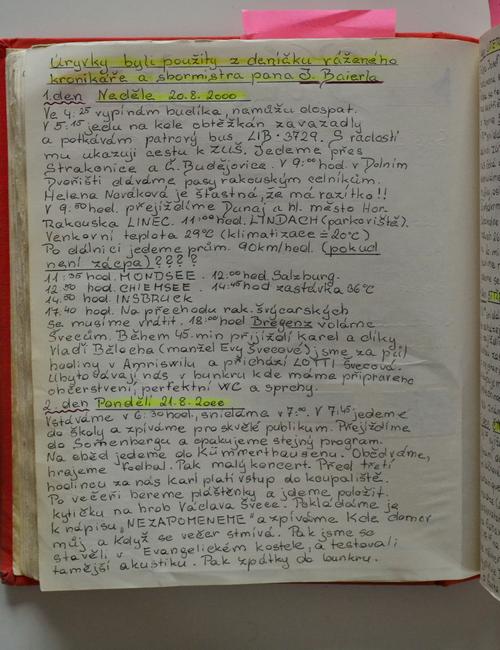 Úryvky byli použity z deníčku váženého
kronikáře a sbormistra pana J. Baierla
1. den Neděle 20.8.2000
Ve 4:25 vypínám budíka, nemůžu dospat.
V 5:15 jedu na kole obtěžkán zavazadly
a potkávám patrový bus LIB·3729. S radostí
mu ukazuji cestu k ZUŠ. Jedeme přes
Strakonice a Č. Budějovice. V 9:00 hod. v Dolním
Dvořišti dáváme pasy rakouským celníkům.
Helena Nováková je šťastná, že má razítko!!
V 9.50 hod. přejíždíme Dunaj a hl. město Hor.
Rakouska LINEC. 11:00 hod. LINDACH (parkoviště).
Venkovní teplota 29°C (klimatizace = 20°C)
Po dálnici jedeme prům. 90km/hod. (pokud
není zácpa)????
11:35 hod. MONDSEE. 12:00 hod. Salzburg.
12:50 hod. CHIEMSEE. 14:45 hod zastávka 36°C
14:50 hod. INSBRUCK
17.40 hod. Na přechodu rak. švýcarských
se musíme vrátit. 18:00 hod Bregenz voláme
Švecům. Během 45-min přijíždí Karel a díky,
Vladi Bělocha (manžel Evy Švecové) jsme za půl
hodiny v Amriswilu a přichází LOTTI Švecová.
Ubytovávají nás v bunkru kde máme připraveno
občerstvení, perfektní WC a sprchy.
2. den Pondělí 21.8.2000
Vstáváme v 6:30 hod, snídáme v 7:00. V 7:45 jedeme
do školy a zpíváme pro skvělé publikum. Přejíždíme
do Somenbergu a opakujeme stejný program.
Na oběd jedeme do Kümmerthausenu. Obědváme,
hrajeme fodbal. Pak malý koncert. Před třetí
hodinou za nás Karl platí vstup do koupaliště.
Po večeři bereme pláštěnky a jdeme položit
kytičku na hrob Václava Švece. Pokládáme je
k nápisu „NEZAPOMENEME" a zpíváme Kde domov
můj a Když se večer stmívá. Pak jsme se
stavěli v Evangelickém kostele, a testovali
tamější akustiku. Pak zpátky do bunkru.